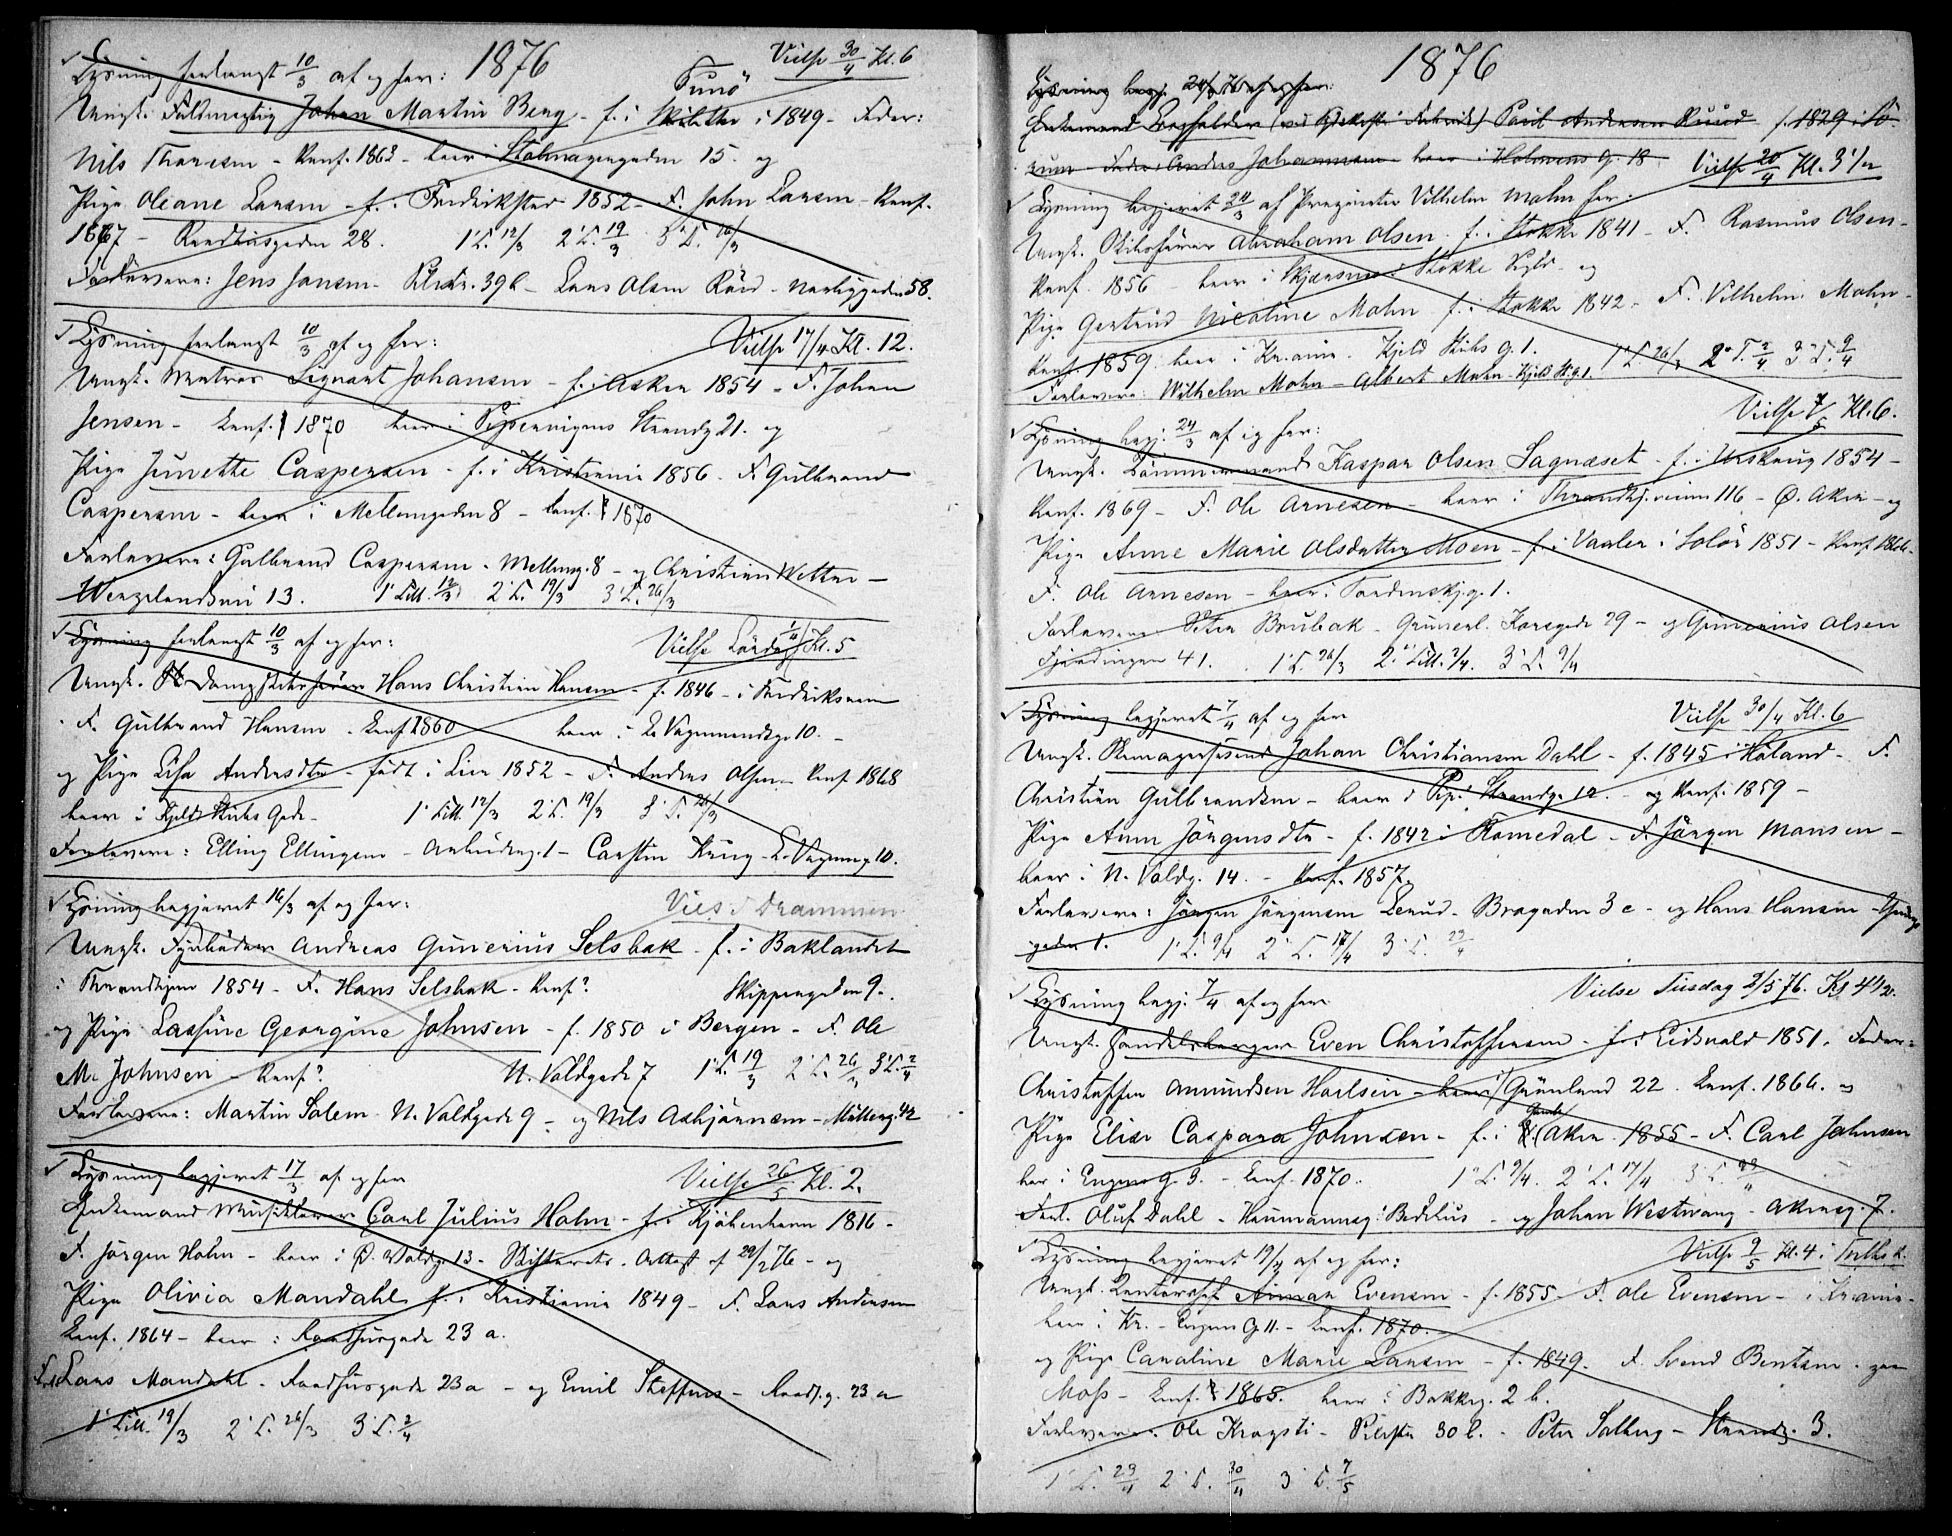 1876
Lysning forlangt 10/3 af og for: Vielse 30/4 Kl. 6
Ungk. Fuldmægtig Johan Martin Berg - f. i 1849 - Fader:
Nils Thoresen - Konf. 1863 - boer i 15. og
Pige Oleane Larsen - f. i Fredrikstad 1852 - F. John Larsen - Konf.
1867 - Raadhusgaden 28. 1' L. 12/3 2' L. 19/3 3' L. 26/3
Forlovere: Jens Jansen - Pilestr. 39 b - Lars Olsen Röed - 58.
Lysning forlangt 10/3 af og for: Vielse 17/4 Kl. 12.
Ungk. Matros Signart Johansen - f. i Asker 1854 - F. Johan
Jensen - Konf. 1870 boer i Pipervigens Strandg. 21. og
Pige Junette Caspersen - f. i Kristiania 1856 - F. Gulbrand
Caspersen - boer i Mellemgaden 8 - Konf. 1870
Forlovere: Gulbrand Caspersen - Mellemg. 8 - og Christian Wetter -
13. 1' Lill. 12/3 2' L. 19/3 3' L. 26/3
Lysning forlangt 10/3 af og for: Vielse Lördag 1/4 Kl. 5
Ungk. Dampskibsförer Hans Christian Hansen - f. 1846 - i Fredriksværn
F. Gulbrand Hansen - Konf. 1860 boer i L. Vognmandsg. 10. -
og Pige Lisa Andersdtr - födt i Lier 1852 - F. Anders Olsen - Konf. 1868
boer i Kjeld Stubs Gade - 1' Lill. 12/3 2' L. 19/3 3' L. 26/3
Forlovere: Elling Ellingsen - 1 - Carsten Krug - L. Vognmg. 10.
Lysning begjæret 16/3 af og for: Vies i Drammen
Ungk. Fyrböder Andreas Gunerius Selsbak - f. i Baklandet
i Throndhjem 1854 - F. Hans Selsbak - Konf? Skippergaden 9.
og Pige Lassine Georgine Johnsen - f. 1850 i Bergen - F. Ole
M. Johnsen - Konf? N. Voldgade 7 1' L. 19/3 2' L. 26/3 3' L. 2/4
Forlovere: Martin Solem - N. Voldgade 9 - og Nils Asbjörnsen - Möllerg. 42
Lysning begjæret 17/3 af og for Vielse 26/5 Kl. 2.
Enkemand Musiklærer Carl Julius Holm - f. i Kjöbenhavn 1816 -
F. Jörgen Holm - boer i Ö. Voldg. 13 - Skifterets Attest af 29/2 76 - og
Pige Olivia Mandahl f. i Kristiania 1849 - F. Lars Andersen
Konf. 1864 - boer i Raadhusgade 23 a.
Lars Mandahl - Raadhusgade 23 a - og Emil Steffens - Raadh.g. 23 a
1' Lill. 19/3 2' L. 26/3 3' L. 2/4
1876
Lysning begj. 24/3 76 af og for:
Enkemand Paul Andersen Ruud f. 1829 i
Fader: Anders Johannesen - boer i Holmens G. 18 Vielse 20/4 Kl. 3 1/2
Lysning begjæret 24/3 af Vilhelm Mohn for.
Ungk. Skibsförer Abraham Olsen f. i Stokke 1841 - F. Rasmus Olsen -
Konf. 1856 - boer i Stokke Sogn - og
Pige Gertrud Nicoline Mohn f. i Stokke 1842 - F. Vilhelm Mohn -
Konf. 1859 boer i Kr.ania - Kjeld Stubs G. 1. 1' L. 26/3 2' L. 2/4 3' L. 9/4
Forlovere: Wilhelm Mohn - Albert Mohn Kjeld St. g. 1.
Vielse 7/5 Kl. 6.
Lysning begj. 24/3 af og for:
Ungk. Tömmermand Kaspar Olsen Sagnæset - f. i Urskoug 1854 -
Konf. 1869 - F. Ole Arnesen - boer i Throndhj.veien 116 - Ö. Aker - og
Pige Anne Marie Olsdatter Moen - f. i Vaaler i Solör 1851 - Konf.
F. Ole Arnesen - boer i Tordenskj. g. 1.
Forlovere Peter Brubak - Grünerl. Korsgade 29 - og Gunerius Olsen
Fjerdingen 41. 1' L. 26/3 2' Lill. 2/4. 3' L. 9/4
Lysning begjæret 7/4 af og for Vielse 30/4 Kl. 6
Ungk. Skomagersvend Johan Christiansen Dahl - f. 1845 i Höland - F.
Christian Gulbrandsen - boer i Pip. Strandg. 12. - og Konf. 1859 -
Pige Anne Jörgensdtr - f. 1842 i Romedal - F. Jörgen Monsen -
boer i N. Voldg. 14. - Konf. 1857.
Forlovere: Jörgen Jörgensen Lerud - Brogaden 3 c - og Hans Hansen
gaden 1. 1' L. 9/4 2' L. 17/4 3' L. 23/4
Lysning begj. 7/4 af og for Vielse Tirsdag 2/5 76. Kl. 4 1/2.
Ungk. Handelsborger Even Christoffersen - f. i Eidsvold 1851. Fader:
Christoffer Amundsen Harlsin - boer i Grönland 22. Konf. 1866. og
Pige Elise Caspara Johnsen - f. i Gamle Aker 1855 - F. Carl Johnsen
bor i Engens G. 3. - Konf. 1870. 1' L. 9/4. 2' L. 17/4 3' L. 23/4
Forl. Oluf Dahl - og Johan Westvang - Akersg. 7.
Lysning begjæret 19/4 af og for: Vielse 9/5 Kl. 4 i
Ungk. Kontorist Aimar Evensen - f. 1855 - F. Ole Evensen - i Kr.ania -
boer i Kr. - Engens G 11. - Konf. 1870.
og Pige Caroline Marie Larsen - f. 1849. F. Svend Bentsen -
Moss - Konf. 1865. boer i Bakkeg. 2 b.
Forlovere. Ole Krogsti - Pilestr. 30 b. - Peter Solberg - Strandg. 3.
1' L. 23/4 2' L. 30/4 3' L. 7/5